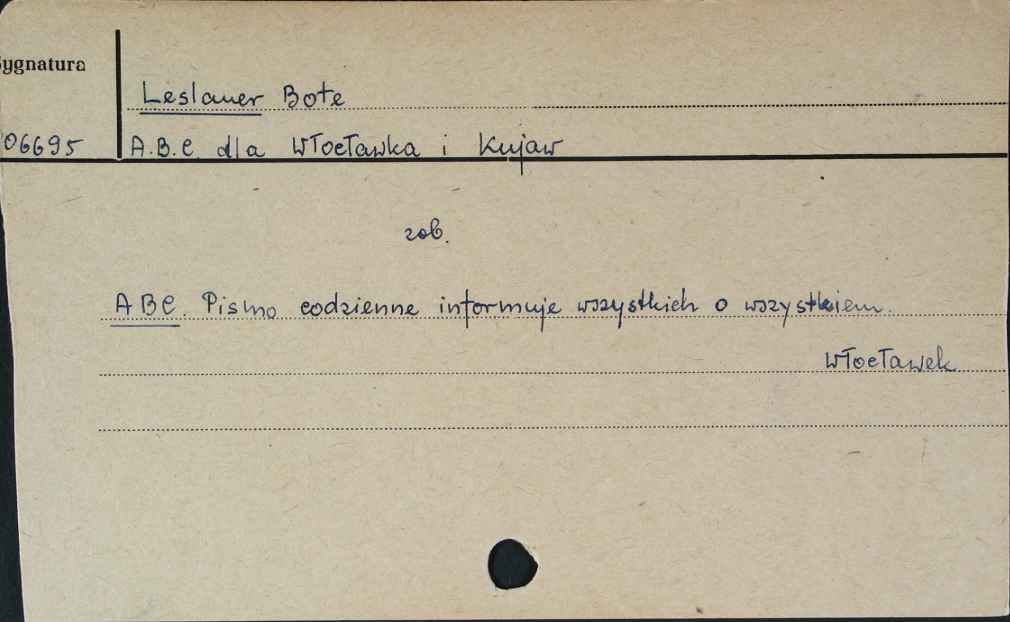 Sygnatura
Leslauer Bote
06695
A.B.C. dla Włocławka i Kujaw
zob.
ABC. Pismo codzienne informuje wszystkich o wszystkiem.
Włocławek